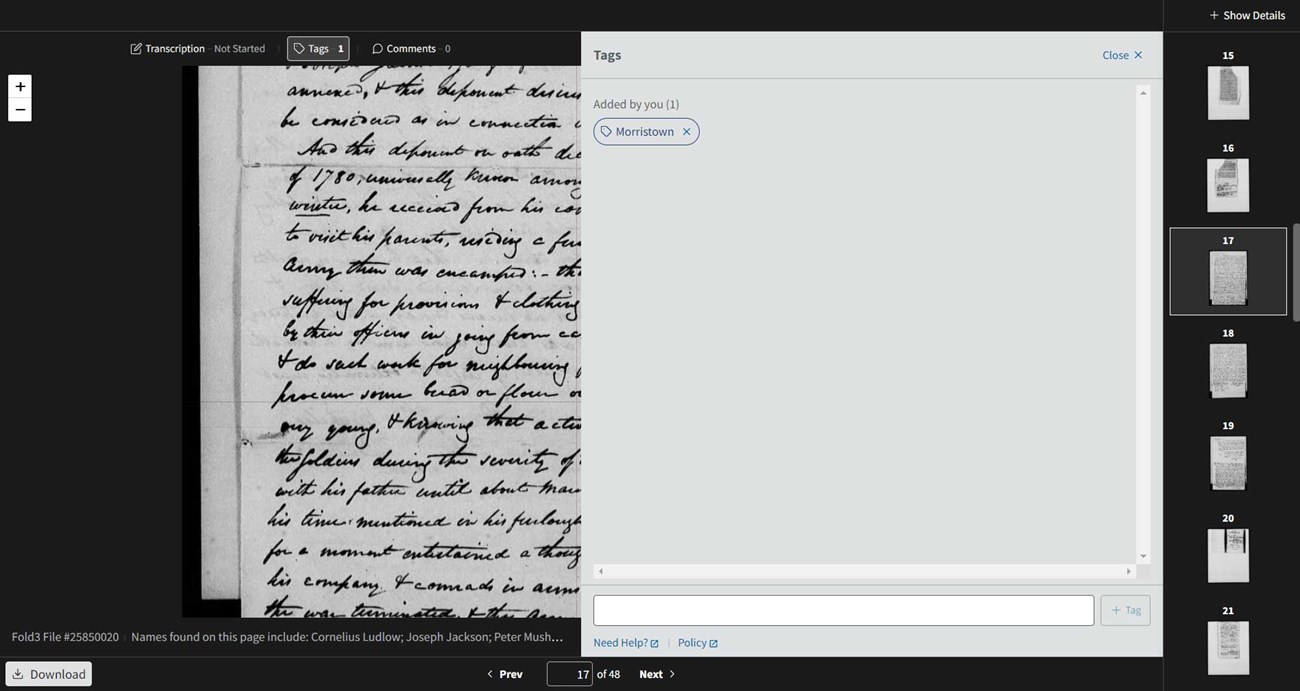 + Show Details
Transcription - Not Started
Tags - 1
Comments - 0
Tags
Close ×
15
+
−
annexed, & this deponent
be considered as in connection
And this deponent on oath
of 1780, universally known among
winter, he received from his
to visit his parents, residing a
Army then was encamped: -
suffering for provisions & clothing
by their officers in going from
& do such work for neighbouring
procure some bread or flour
very young, & knowing that
the Soldiers during the severity of
with his father until about
his time mentioned in his furlough
for a moment entertained a
his company & comrads in arms
the war terminated, & this
Added by you (1)
Morristown ×
16
17
18
19
20
21
+ Tag
Need Help?
Policy
Fold3 File #25850020
Names found on this page include: Cornelius Ludlow; Joseph Jackson; Peter Mush...
Download
Prev
17 of 48
Next